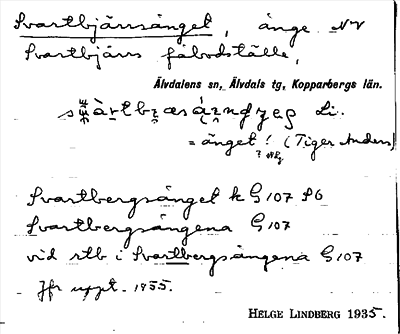 Svartbjärnsänget, änge NV
Svartbjärns fäbodställe,
Älvdalens sn, Älvdals tg, Kopparbergs län.
Li.
= änget! (Tiger Anders)
Svartbergsänget k G 107 S6
Svartbergsängena G 107
vid rtb i Svartbergsängena G 107
Jfr uppt. 1955.
HELGE LINDBERG 1935.